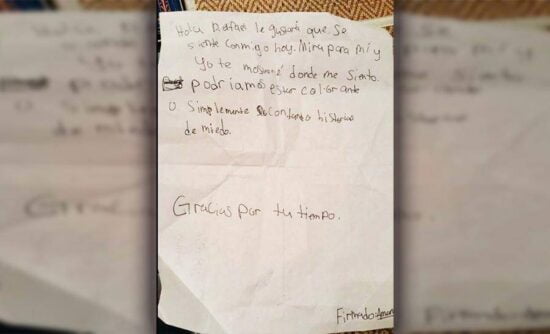 Hola Rafael le gustará que se
siente conmigo hoy. Mira para mí y
Yo te mostraré donde me siento.
podríamos estar colorante
o simplemente contando historias
de miedo.
Gracias por tu tiempo.
Firmado: